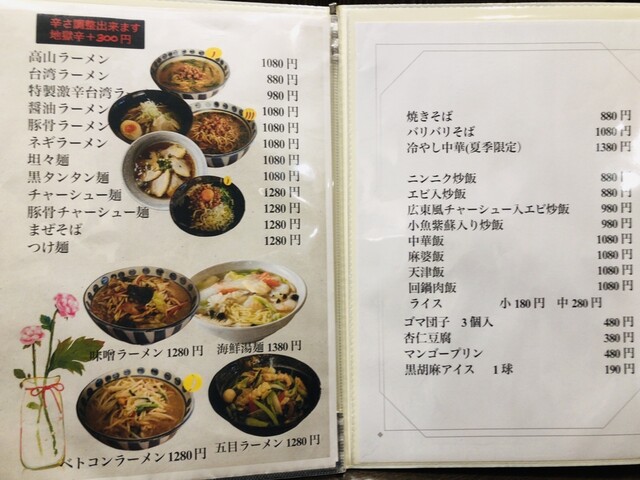 辛さ調整出来ます
地獄辛+300円
高山ラーメン 1080円
台湾ラーメン 880円
特製激辛台湾ラ 980円
醤油ラーメン 1080円
豚骨ラーメン 1080円
ネギラーメン 1080円
坦々麺 1080円
黒タンタン麺 1080円
チャーシュー麺 1280円
豚骨チャーシュー麺 1280円
まぜそば 1280円
つけ麺 1280円
味噌ラーメン 1280円 海鮮湯麺 1380円
ベトコンラーメン 1280円 五目ラーメン 1280円
焼きそば 880円
パリパリそば 1080円
冷やし中華(夏季限定) 1380円
ニンニク炒飯 880円
エビ入炒飯 880円
広東風チャーシュー入エビ炒飯 980円
小魚紫蘇入り炒飯 980円
中華飯 1080円
麻婆飯 1080円
天津飯 1080円
回鍋肉飯 1080円
ライス 小180円 中280円
ゴマ団子 3個入 480円
杏仁豆腐 380円
マンゴープリン 480円
黒胡麻アイス 1球 190円